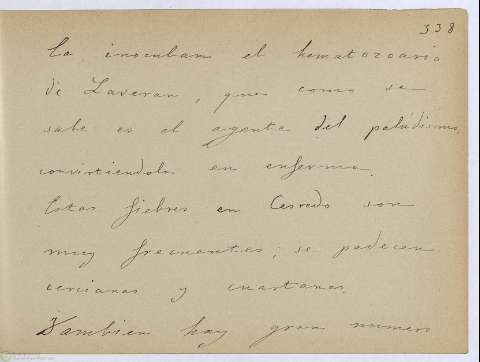 338
la inoculan el hematozoario
de Laveran, que como se
sabe es el agente del palúdismo,
convirtiendola en enferma.
Estas fiebres en Cerredo son
muy frecuentes; se padecen
tercianas y cuartanas.
Tambien hay gran numero